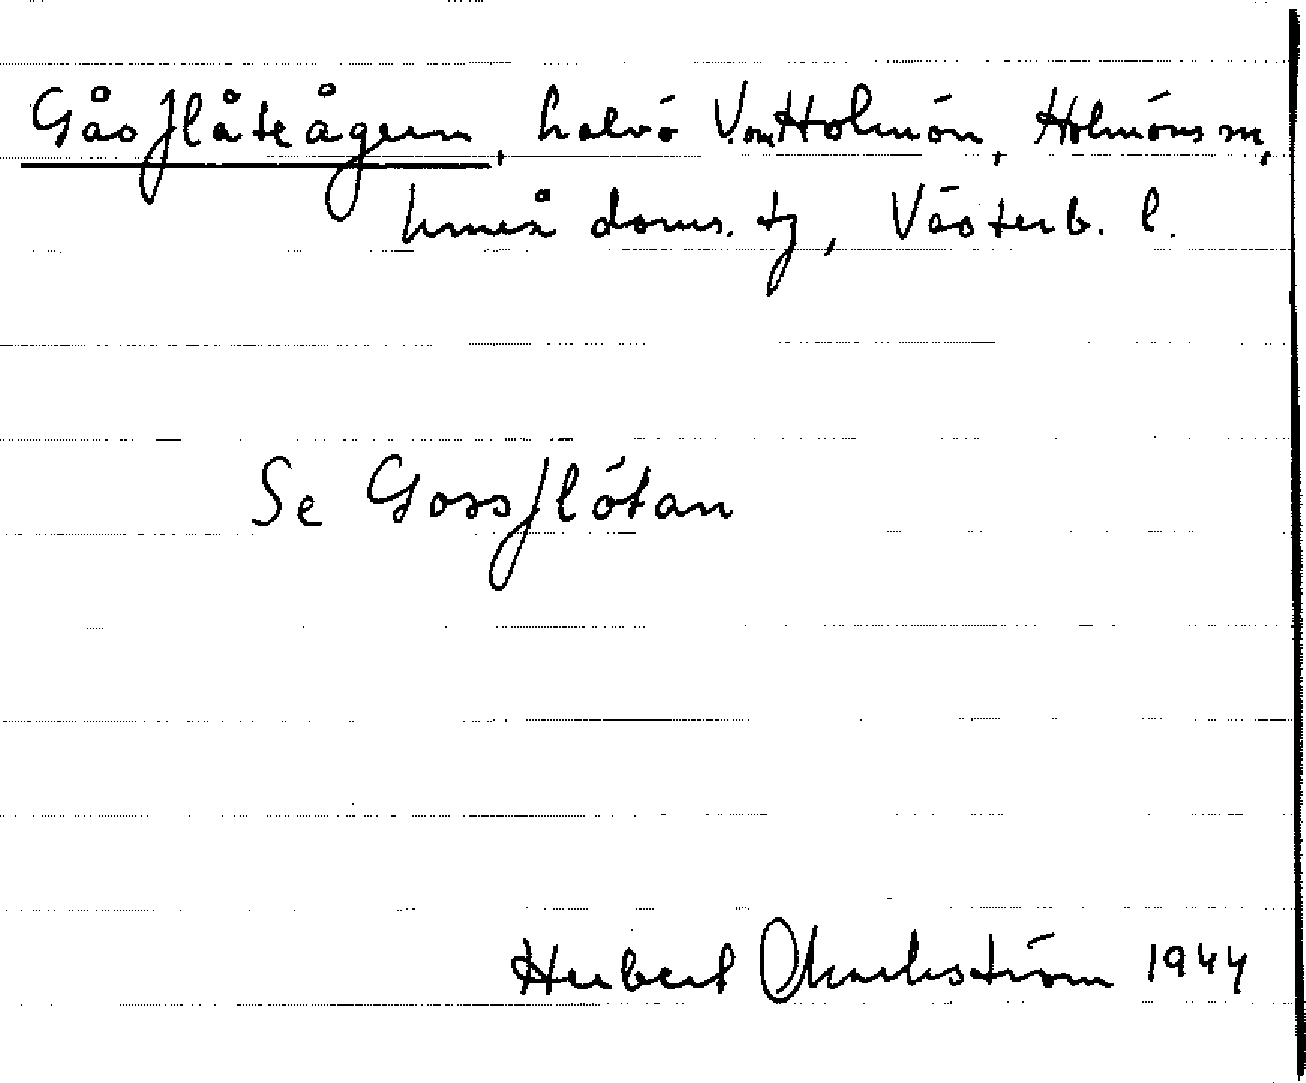 Gåsflåteågern, halvö V.om Holmön, Holmöns sn,
Umeå doms. tg, Västerb. l.
Se Gossflötan
Herbert Markström 1944